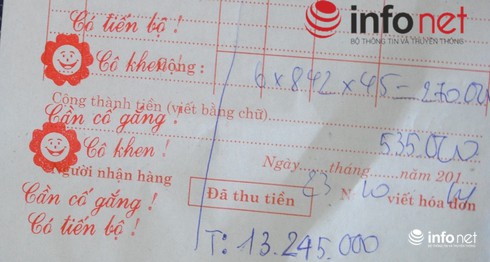 Có tiến bộ !
infonet
BỘ THÔNG TIN VÀ TRUYỀN THÔNG
Cô khen ộng :
6 x 842 x 45 = 270.000
Cộng thành tiền (viết bằng chữ)
Cần cố gắng !
535.000
Cô khen !
Ngày......tháng......năm 201
Người nhận hàng
Cần cố gắng !
Đã thu tiền
23 N 10 viết hóa đơn
Có tiến bộ !
T: 13.245.000
infonet